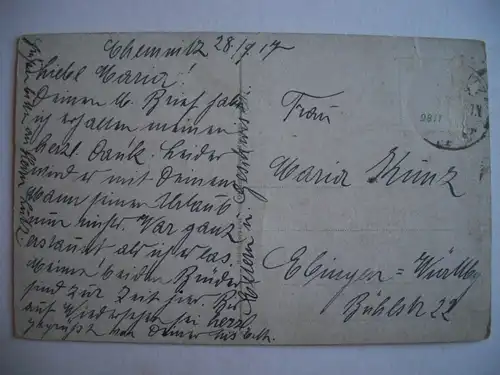 Chemnitz 28/9 17
Liebe Maria!
Deinen lb. Brief habe
ich erhalten meinen
herzl. Dank. Leider
mit Deinem
Mann seinen Urlaub
nun nichts. War ganz
erstaunt als ich er las.
Meine beiden Brüder
sind zur Zeit hier.
auf Wiedersehen sei herzl
gegrüßt von Deiner
Eltern u. Geschwister.
Frau
Maria Kunz
Ebingen = Württbg
Bühlstr 22
9817